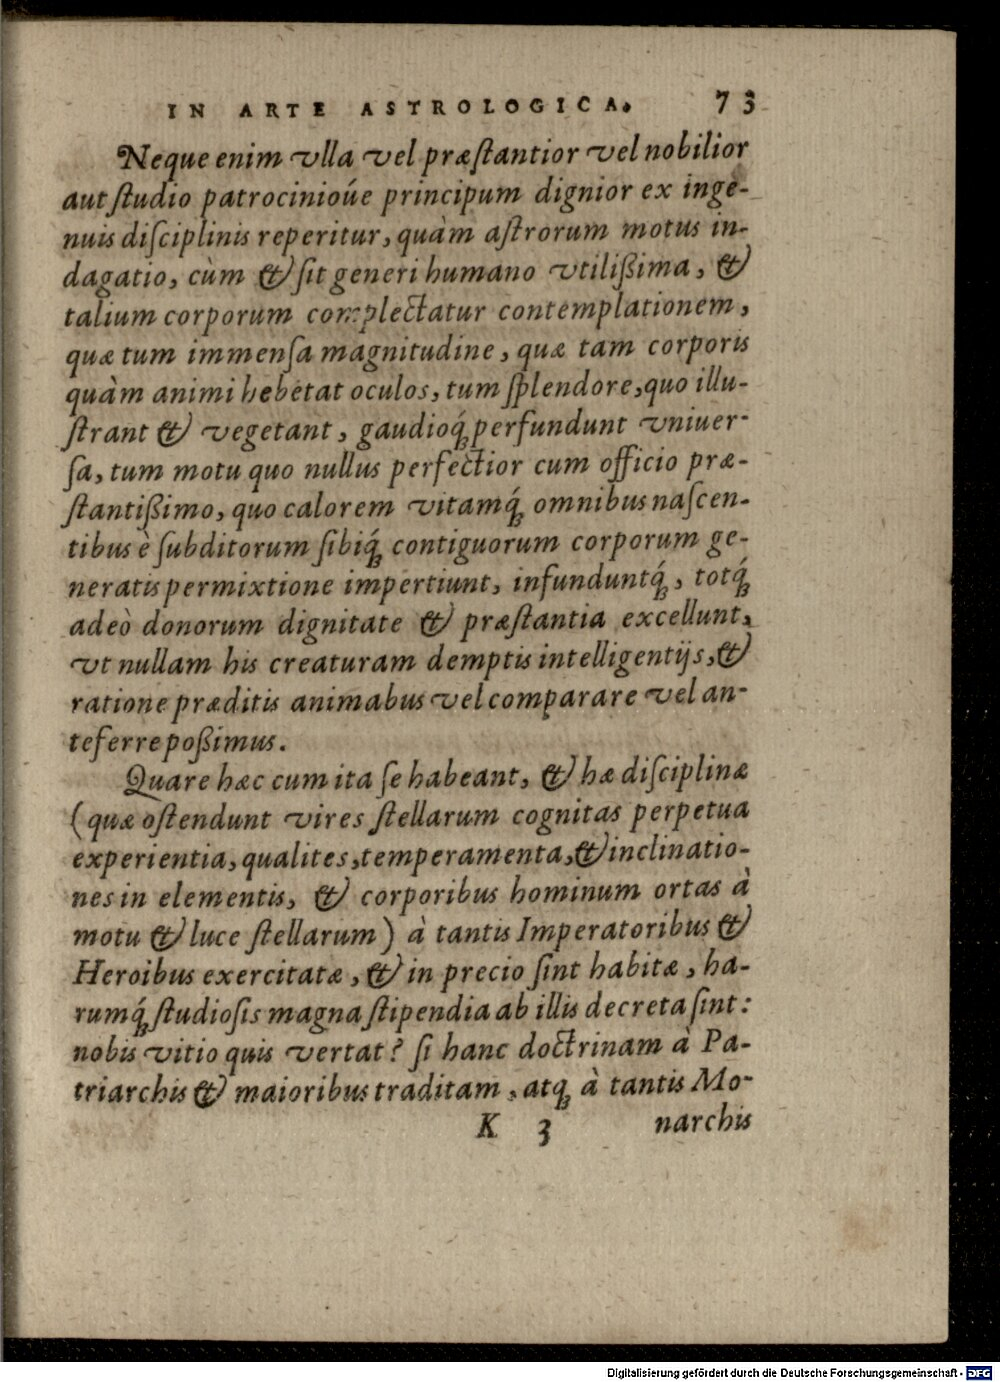 IN ARTE ASTROLOGICA. 73
Neque enim vlla vel præſtantior vel nobilior
aut ſtudio patrocinioúe principum dignior ex inge-
nuis diſciplinis reperitur, quàm aſtrorum motus in-
dagatio, cùm & ſit generi humano vtilißima, &
talium corporum complectatur contemplationem,
quæ tum immenſa magnitudine, quæ tam corporis
quàm animi hebetat oculos, tum ſplendore, quo illu-
ſtrant & vegetant, gaudioq́ꝫ perfundunt vniuer-
ſa, tum motu quo nullus perfectior cum officio præ-
ſtantißimo, quo calorem vitamq́ꝫ omnibus naſcen-
tibus è ſubditorum ſibiq́ꝫ contiguorum corporum ge-
neratis permixtione impertiunt, infunduntq́ꝫ, totq́ꝫ
adeò donorum dignitate & præſtantia excellunt,
vt nullam his creaturam demptis intelligentijs, &
ratione præditis animabus vel comparare vel an-
teferre poßimus.
Quare hæc cum ita ſe habeant, & hæ diſciplinæ
(quæ oſtendunt vires ſtellarum cognitas perpetua
experientia, qualites, temperamenta, & inclinatio-
nes in elementis, & corporibus hominum ortas à
motu & luce ſtellarum) à tantis Imperatoribus &
Heroibus exercitatæ, & in precio ſint habitæ, ha-
rumq́ꝫ ſtudioſis magna ſtipendia ab illis decreta ſint:
nobis vitio quis vertat? ſi hanc doctrinam à Pa-
triarchis & maioribus traditam, atqꝫ à tantis Mo-
K 3 narchis
Digitalisierung gefördert durch die Deutsche Forschungsgemeinschaft - DFG